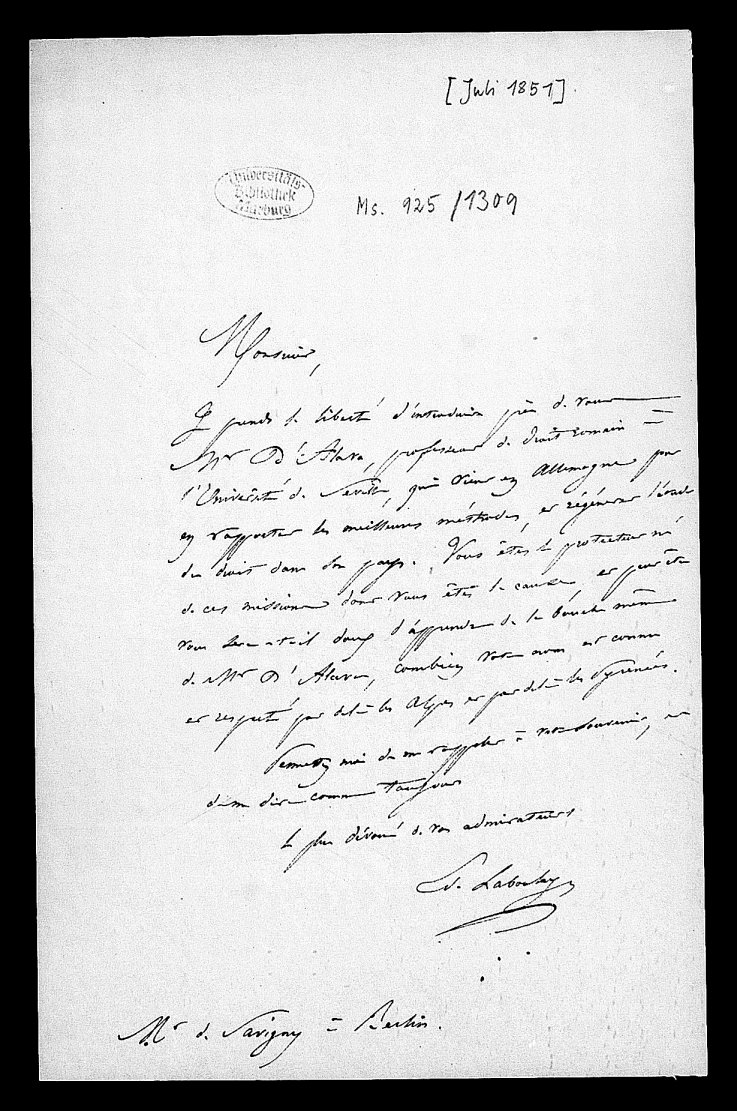 [Juli 1851].
Universitäts-
Bibliothek
Marburg
Ms. 925/1309
Monsieur,
Je prends la liberté d'introduire près de vous
Mr D'Alava, professeur de droit romain à
l'Université de Seville, qui vient en Allemagne pour
en rapporter les meilleures méthodes, et régénérer l'étude
du droit dans son pays. Vous êtes le protecteur né
de ces missions dont vous êtes la cause, et peut être
vous sera-t-il doux d'apprendre de la bouche même
de Mr D'Alava, combien votre nom est connu
et respecté par delà les Alpes et par delà les Pyrénées.
Permettez moi de me rappeler à votre souvenir, et
de me dire comme toujours
le plus dévoué de vos admirateurs
Ed. Laboulaye
Mr de Savigny à Berlin.